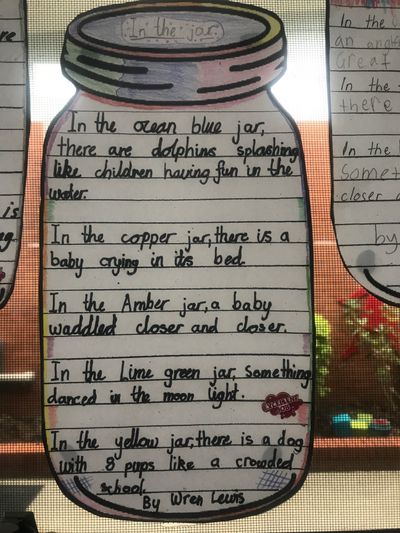 In the jar
In the ocean blue jar,
there are dolphins splashing
like children having fun in the
water.
In the copper jar, there is a
baby crying in its bed.
In the Amber jar, a baby
waddled closer and closer.
In the Lime green jar, something
danced in the moon light.
EXCELLENT
JOB
In the yellow jar, there is a dog
with 8 pups like a crowded
school.
By Wren Lewis
is
In the
an
Great
In the
there
In the
Somet
closer
by